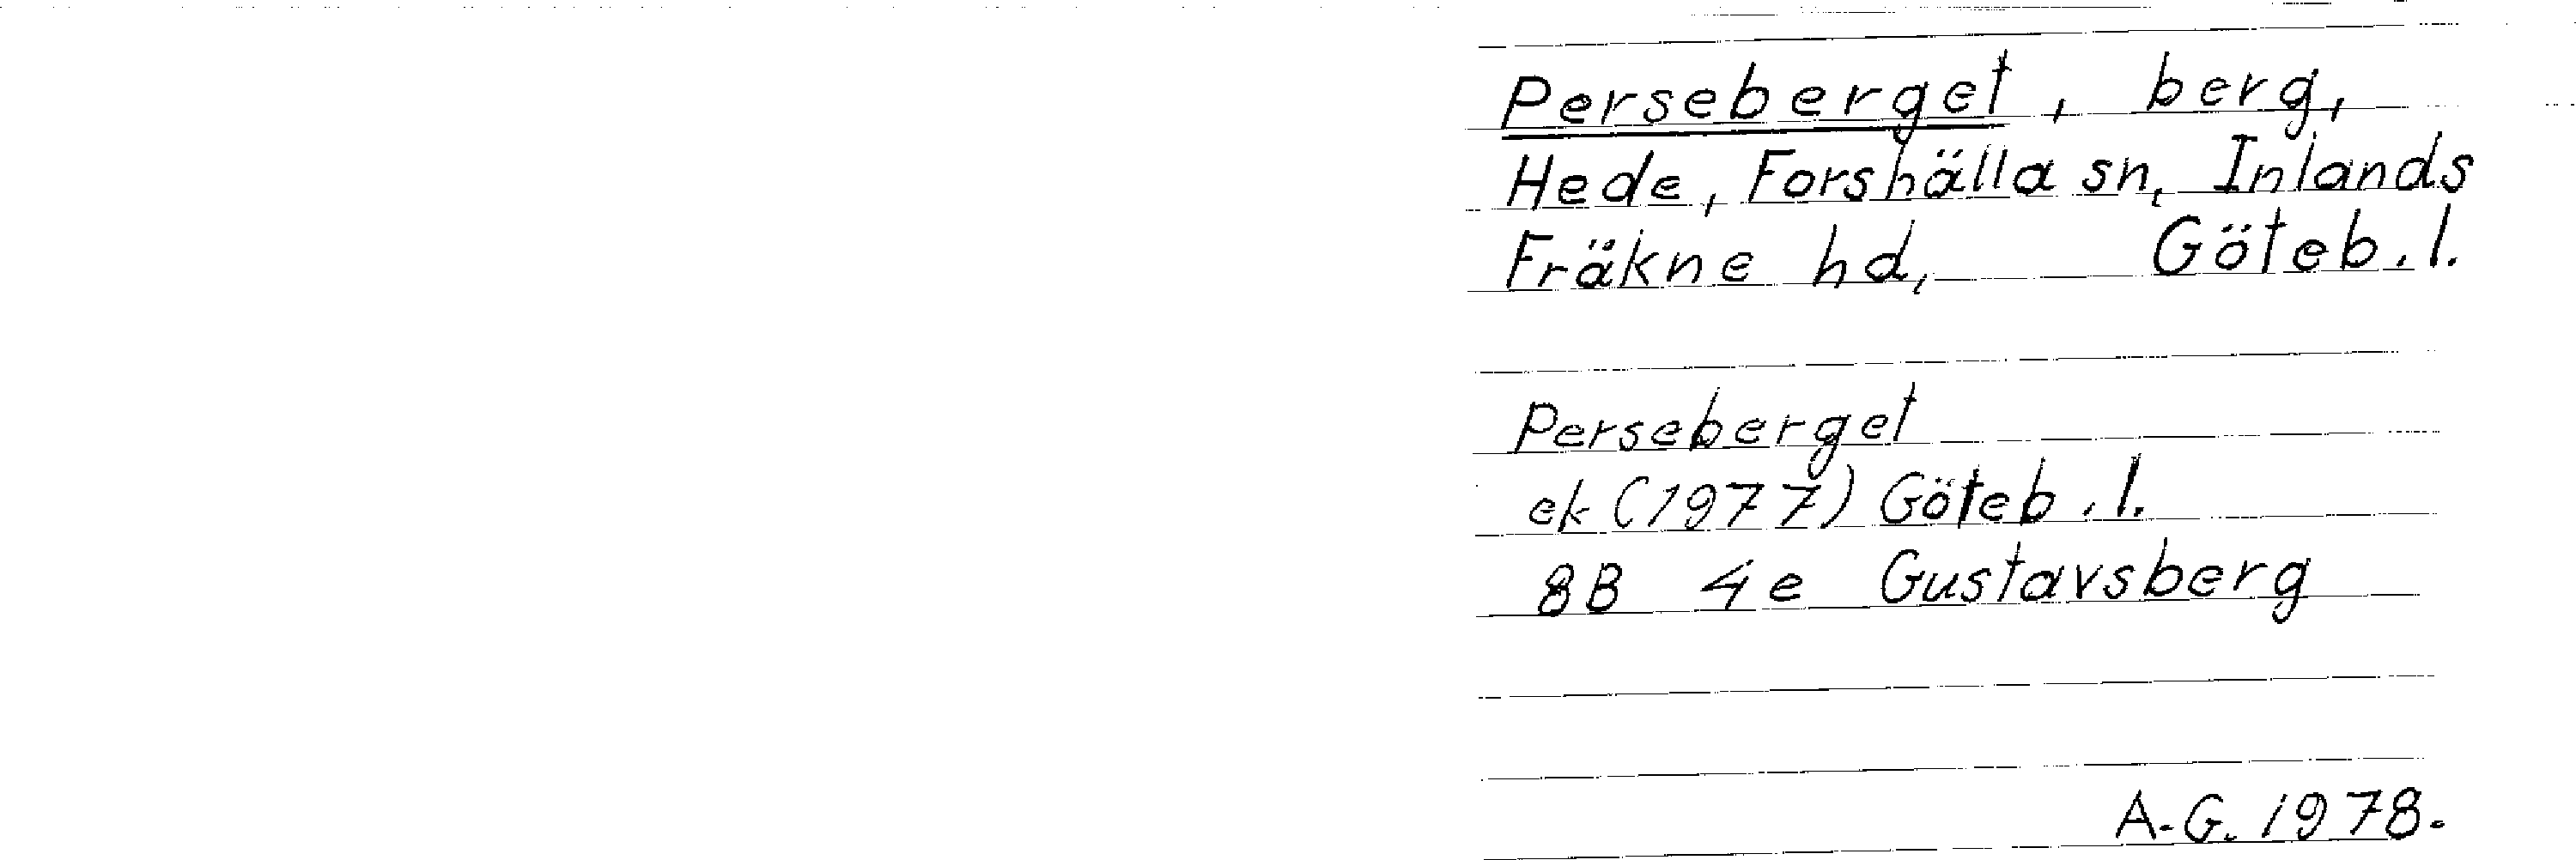 Perseberget, berg,
Hede, Forshälla sn, Inlands
Fräkne hd, Göteb.l.
Perseberget
ek (1977) Göteb.l.
8B 4e Gustavsberg
A-G. 1978.